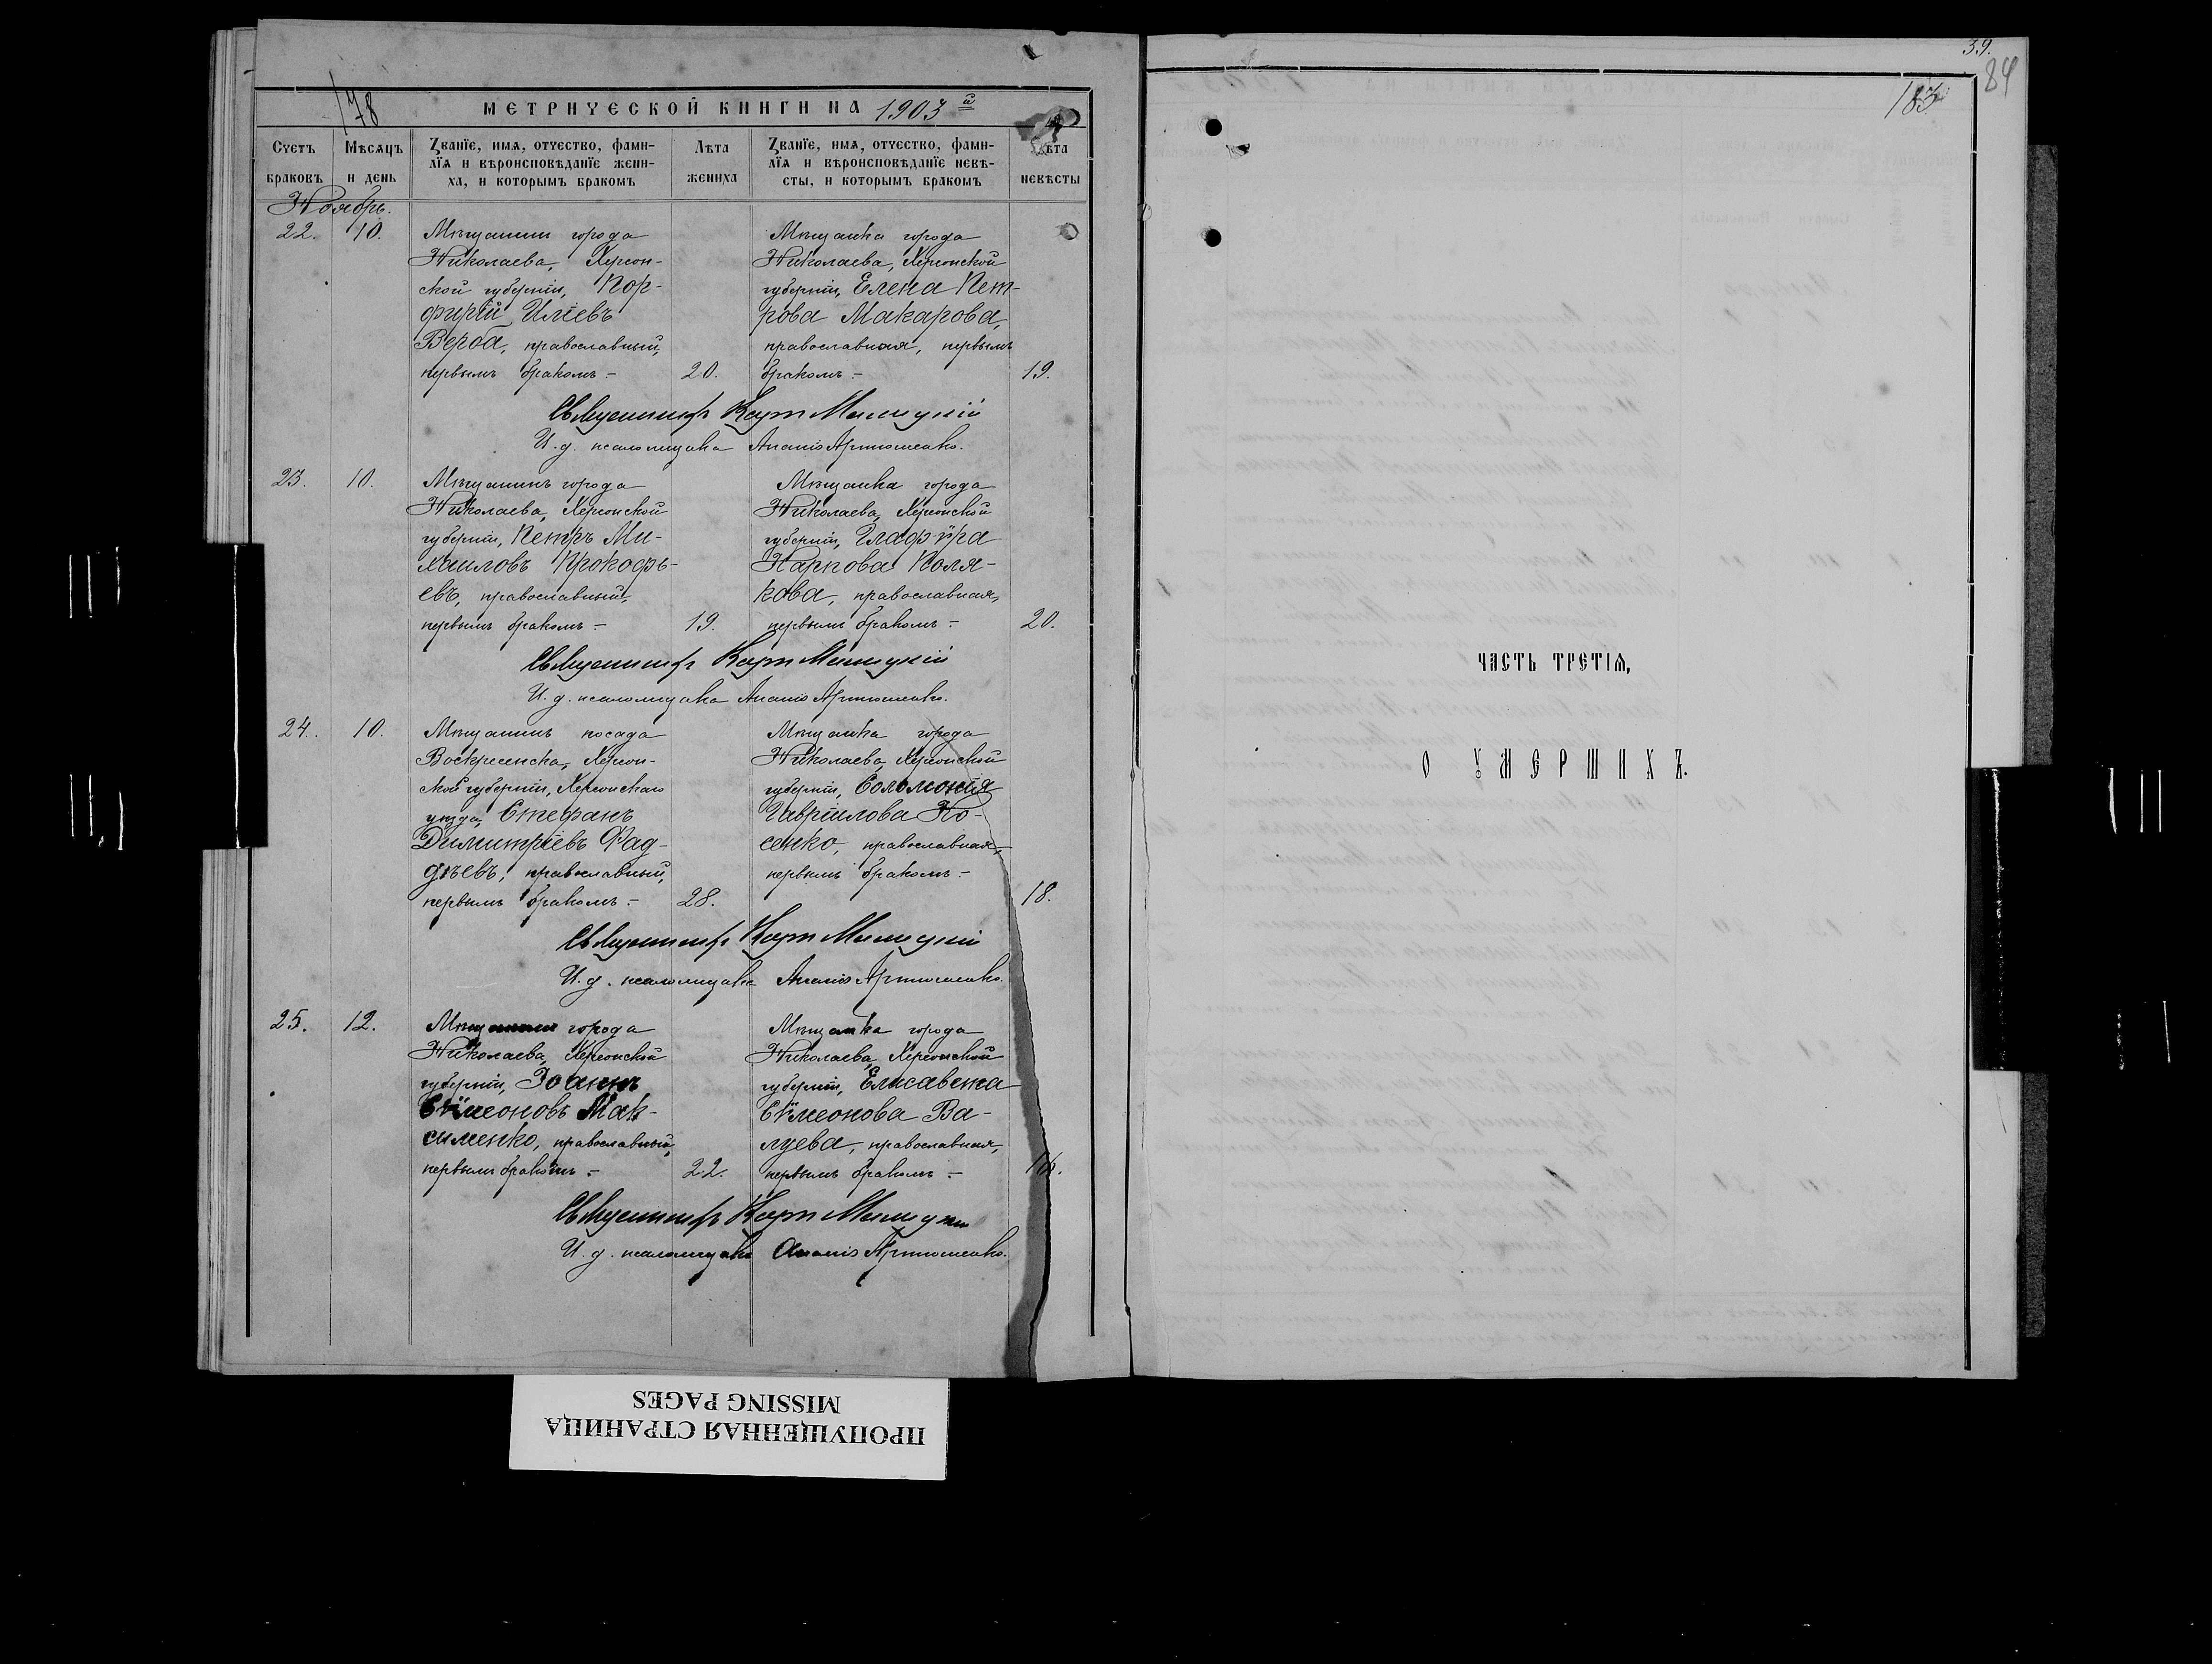 178
МЕТРИЧЕСКОЙ КНИГИ НА 1903й
Счетъ браковъ
Мѣсяцъ и день
Званіе, имя, отчество, фами-
лія и вѣроисповѣданіе жени-
ха, и которымъ бракомъ
Лѣта жениха
Званіе, имя, отчество, фами-
лія и вѣроисповѣданіе невѣ-
сты, и которымъ бракомъ
Лѣта невѣсты
Ноябрь.
22. 10.
Мѣщанин города
Николаева, Херсон-
ской губерніи, Пор-
фирій Иліевъ
Верба, православный,
первымъ бракомъ.- 20.
Мѣщанка города
Николаева, Херсонской
губерніи, Елена Пет-
рова Макарова,
православная, первымъ
бракомъ.- 19.
И. д. псаломщика Ананій Артюшенко.
23. 10.
Мѣщанинъ города
Николаева, Херсонской
губерніи, Петръ Ми-
хаиловъ Прокофь-
евъ, православный,
первымъ бракомъ.- 19.
Мѣщанка города
Николаева, Херсонской
губерніи, Глафѵра
Карпова Поля-
кова, православная,
первымъ бракомъ.- 20.
И. д. псаломщика Ананій Артюшенко.
24. 10.
Мѣщанинъ посада
Воскресенска, Херсон-
ской губерніи, Херсонскаго
уѣзда, Стефанъ
Димитріевъ Фад-
дѣевъ, православный,
первымъ бракомъ.- 28.
Мѣщанка города
Николаева, Херсонской
губерніи, Соломонія
Гавріилова Но-
сенко, православная,
первымъ бракомъ.- 18.
И. д. псаломщика Ананій Артюшенко.
25. 12.
Мѣщанинъ города
Николаева, Херсонской
губерніи, Іоаннъ
Сѵмеоновъ Мак-
сименко, православный,
первымъ бракомъ.- 22.
Мѣщанка города
Николаева, Херсонской
губерніи, Елисавета
Сѵмеонова Ва-
луева, православная,
первымъ бракомъ.-
И. д. псаломщика Ананій Артюшенко.
39.
84
183
ЧАСТЬ ТРЕТІЯ,
О УМЕРШИХЪ.
ПРОПУЩЕННАЯ СТРАНИЦА
MISSING PAGES